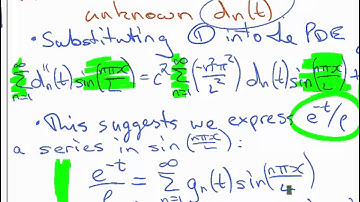 unknown dn(t)
• Substituting ① into the PDE
∞ Σ n=1 d″n(t) sin(nπx/2) = c² ∞ Σ n=1 (-n²π²/2) dn(t) sin(nπx/2) +
• This suggests we express e^-t/ρ
a series in sin(nπx/2):
e^-t/ρ = ∞ Σ n=1 gn(t) sin(nπx/2)